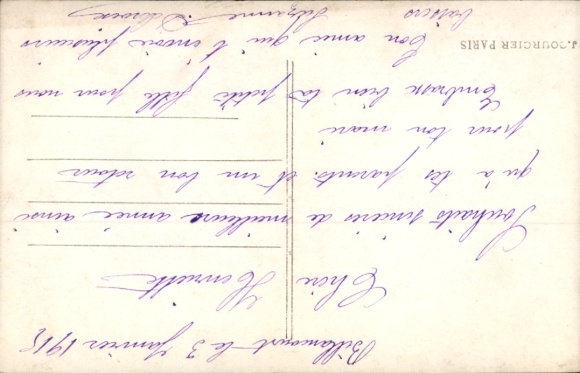 Billancourt le 3 Janvier 1918
Chère Henriette
Souhaits sincères de meilleure année ainsi
qu'à tes parents. et un bon retour
pour ton mari
Embrasse bien ta petite fille pour nous
Ton amie qui t'envoie plusieurs
baisers
Suzanne
J. COURCIER PARIS